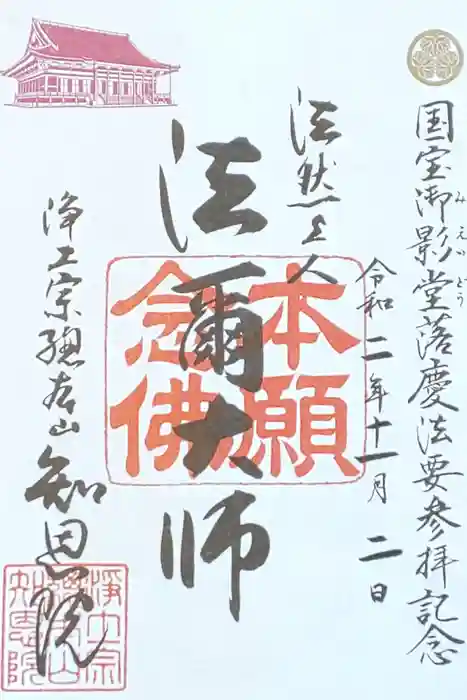 国宝御影堂落慶法要参拝記念
みえいどう
法然上人
令和二年十一月二日
法爾大師
本願
念佛
浄土宗総本山知恩院
浄土宗
総本山
知恩院